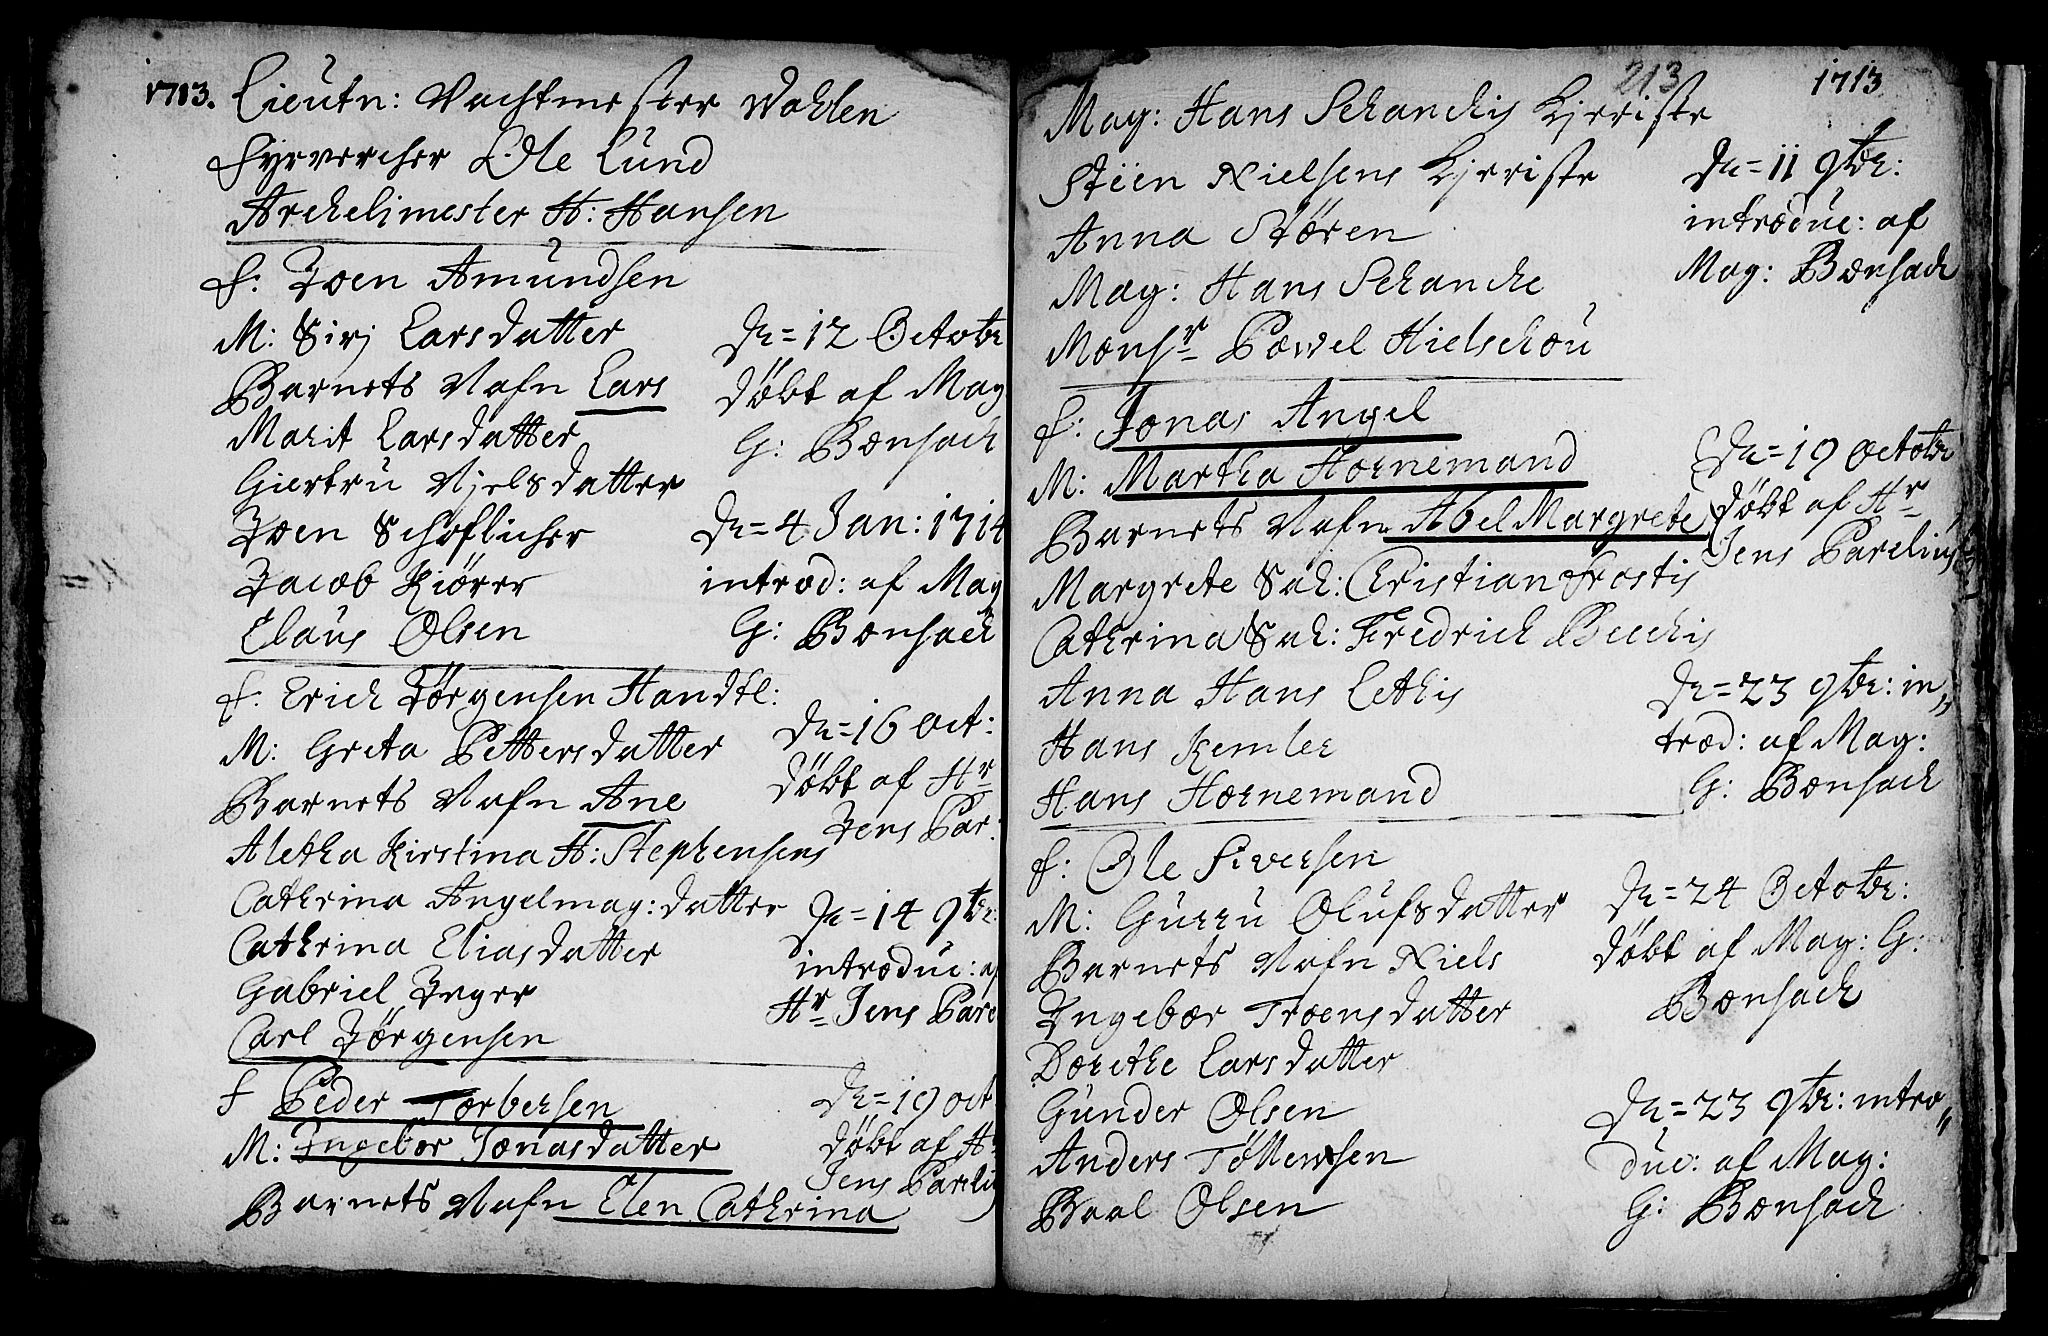 1713. Lieutn: Vachtmester Wahlen
Fyrvercher Ole Lund
Archelimester H: Hansen
f: Joen Amundsen
M: Sirj Larsdatter
Barnets Nafn Lars
Marit Larsdatter
Giertru Njelsdatter
Joen Schoflicher
Jacob Kiörer
Claus Olsen
Dn = 12 Octobr
döbt af Mag
G: Bænsach
Dn = 4 Jan: 1714
introd: af Mag
G: Bænsach
f: Erich Jørgensen Handtl:
M: Greta Pettersdatter
Barnets Nafn Ane
Aletha Kirstina H: Stephensens
Cathrina Angelmag: datter
Cathrina Eliasdatter
Gabriel Jeger
Carl Jörgensen
Dn = 16 Oct:
döbt af Hr
Jens Par:
Dn = 14 9br:
introduc: af
Hr Jens Pare
f Peder Torbersen
M: Ingebor Jonasdatter
Barnets Nafn Elen Cathrina
Dn = 19 oct
döbt af H
Jens Pareliu
213 1713
Mag: Hans Schanchis Kjeriste
Stéen Nielsens Kjeriste
Anna Stören
Mag: Hans Schanche
Monsr Powel Hielschou
Dn = 11 9br:
introduc: af
Mag: Bænsach
f: Jonas Angel
M: Martha Hornemand
Barnets Nafn Abel Margrete
Margrete Sal: Christian Frostis
Cathrina Sal: Fredrich Bechis
Anna Hans Lethis
Hans Kemler
Hans Hornemand
Dn = 19 Octobr
döbt af Hr
Jens Parelius
Dn = 23 9br: in,,
trod: af Mag:
G: Bænsach
f: Ole Siversen
M: Gurru Olufsdatter
Barnets Nafn Niels
Ingebor Troensdatter
Dorethe Larsdatter
Gunder Olsen
Anders Töllensen
Baal Olsen
Dn = 24 Octobr:
döbt af Mag: G:
Bænsach
Dn = 23 9br: intro,,
duc: af Mag:
G: Bænsach